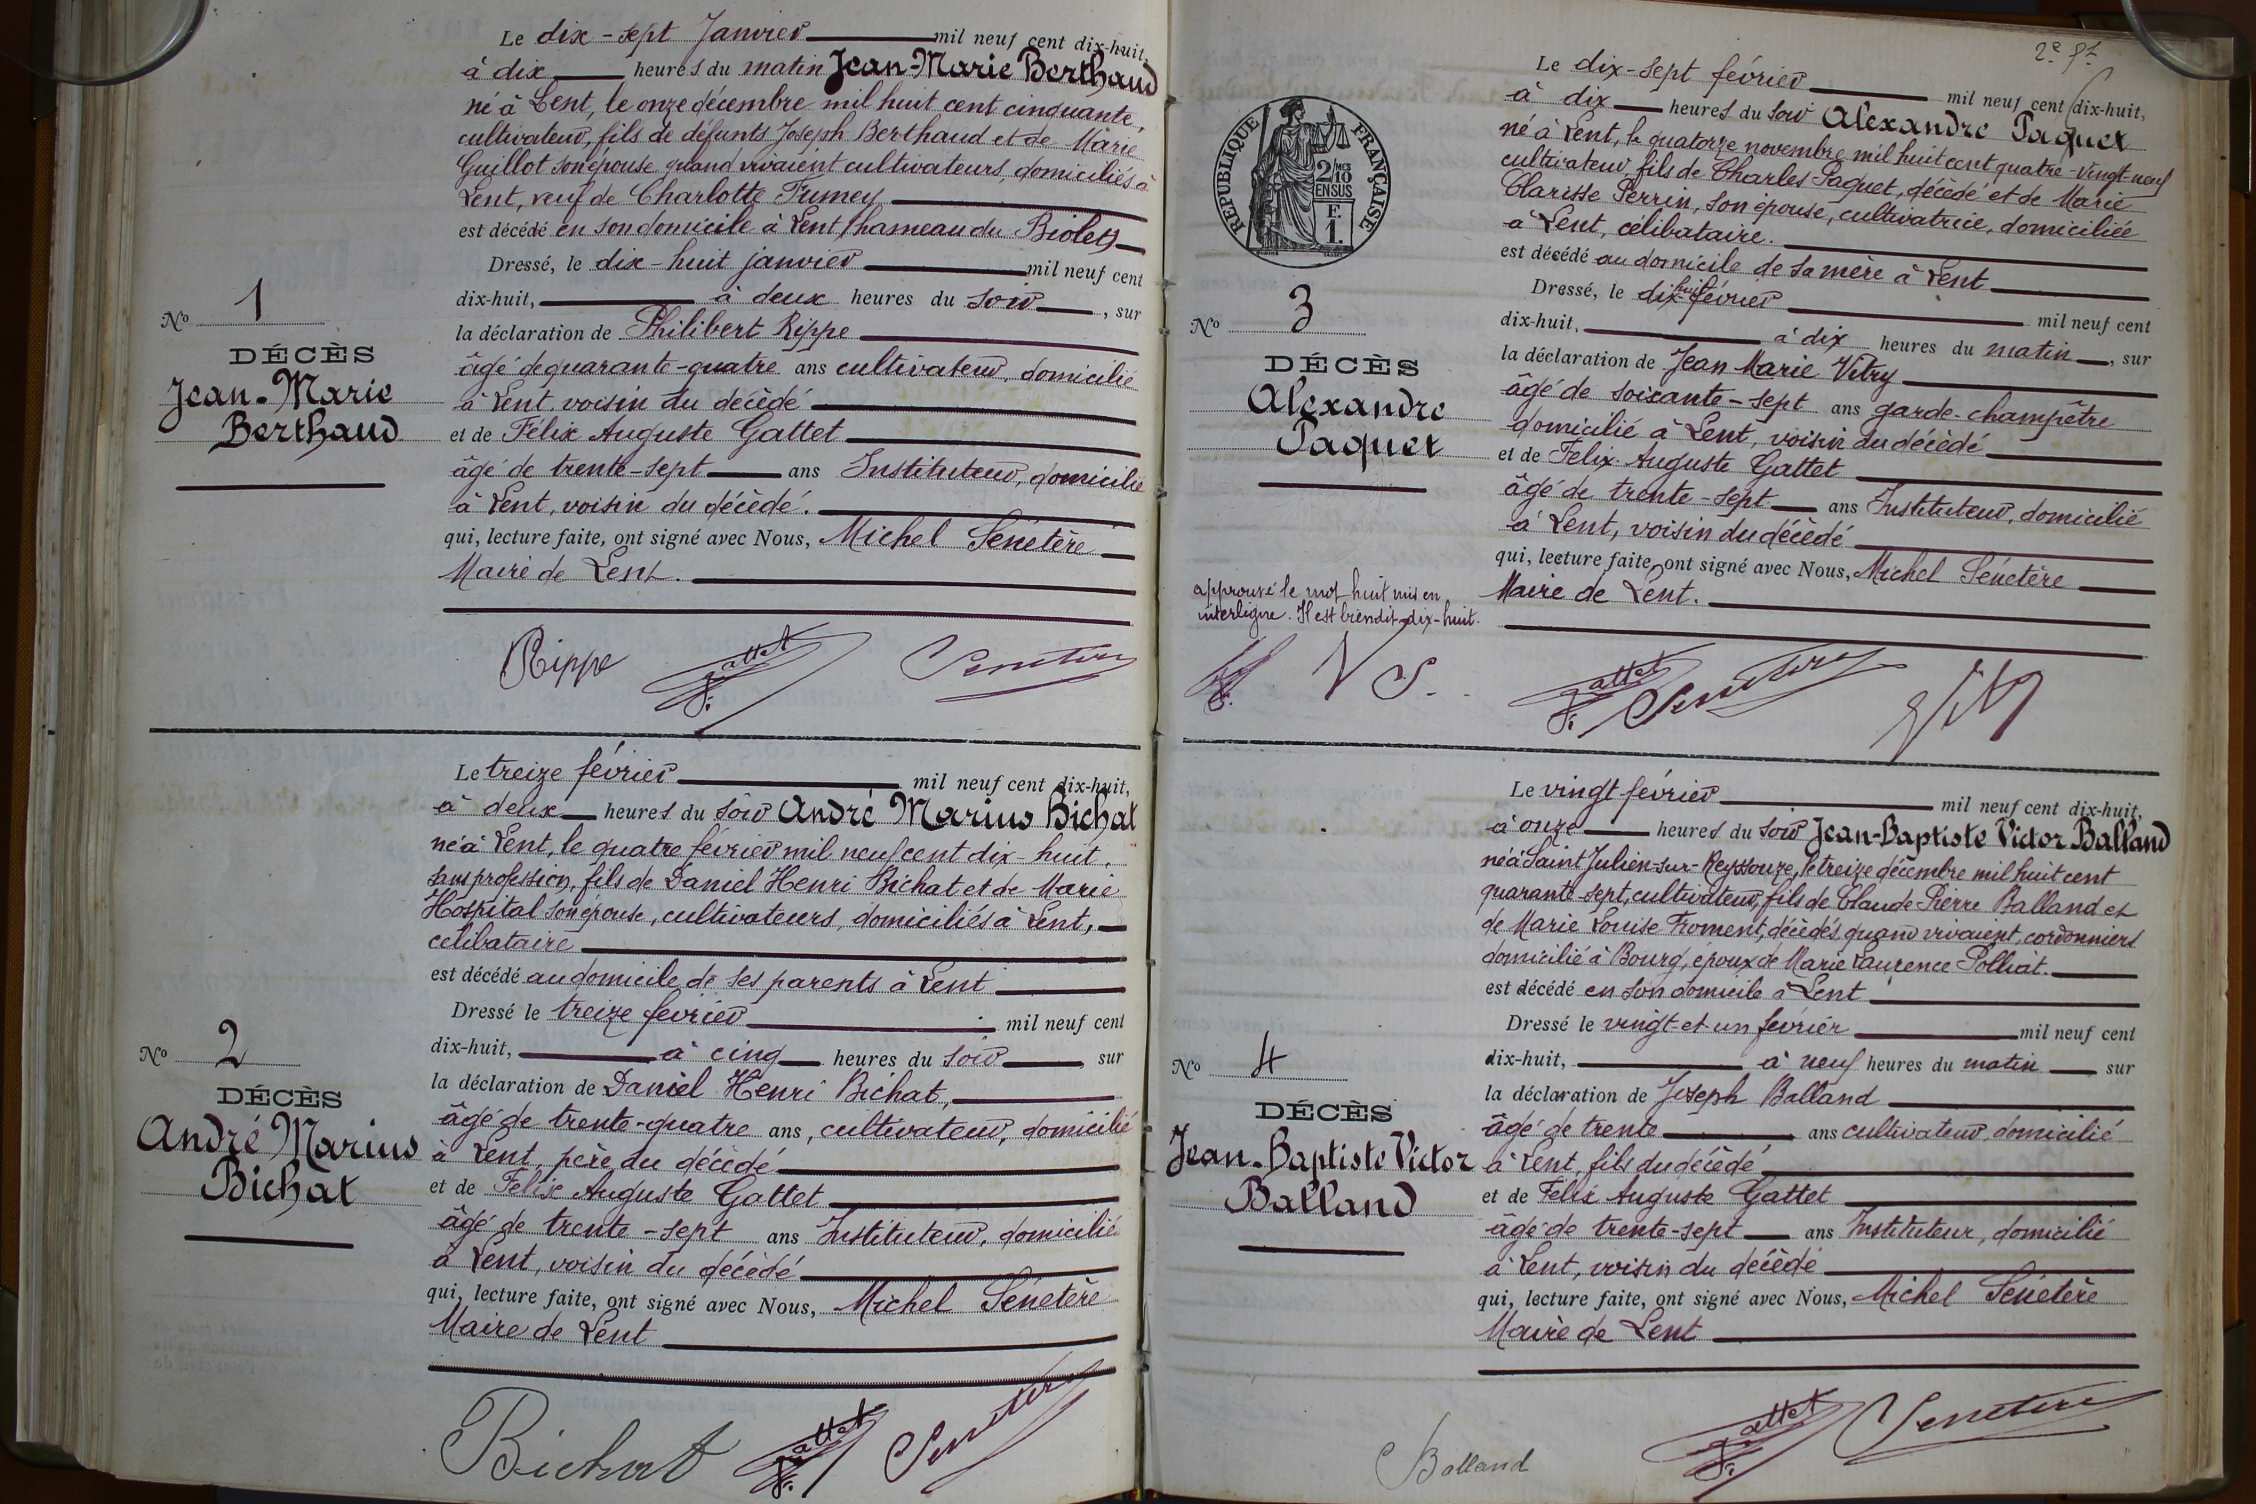 Le dix-sept Janvier mil neuf cent dix-huit,
à dix heures du matin Jean-Marie Berthaud
né à Lent, le onze décembre mil huit cent cinquante,
cultivateur, fils de défunts Joseph Berthaud et de Marie
Guillot son épouse quand vivaient cultivateurs, domiciliés à
Lent, veuf de Charlotte Fumey
est décédé en son domicile à Lent (hameau du Biolet)
Dressé, le dix-huit janvier mil neuf cent
dix-huit, à deux heures du soir, sur
la déclaration de Philibert Rippe
âgé de quarante-quatre ans cultivateur, domicilié
à Lent, voisin du décédé
et de Félix Auguste Gattet
âgé de trente-sept ans Instituteur, domicilié
à Lent, voisin du décédé.
qui, lecture faite, ont signé avec Nous, Michel Sénetère
Maire de Lent.
No 1
DÉCÈS
Jean-Marie
Berthaud
Rippe F. Gattet Senetère
Le treize février mil neuf cent dix-huit,
à deux heures du soir André Marius Bichat
né à Lent, le quatre février mil neuf cent dix-huit,
sans profession, fils de Daniel Henri Bichat et de Marie
Hospital son épouse, cultivateurs, domiciliés à Lent,
célibataire
est décédé au domicile de ses parents à Lent
Dressé le treize février mil neuf cent
dix-huit, à cinq heures du soir sur
la déclaration de Daniel Henri Bichat,
âgé de trente-quatre ans, cultivateur, domicilié
à Lent, père du décédé
et de Félix Auguste Gattet
âgé de trente-sept ans Instituteur, domicilié
à Lent, voisin du décédé
qui, lecture faite, ont signé avec Nous, Michel Sénetère
Maire de Lent
No 2
DÉCÈS
André Marius
Bichat
Bichat F. Gattet Senetère
2e ft
RÉPUBLIQUE FRANÇAISE
2/10 EN SUS
F. 1.
Le dix-sept février mil neuf cent dix-huit,
à dix heures du soir Alexandre Paquet
né à Lent, le quatorze novembre mil huit cent quatre-vingt-neuf
cultivateur, fils de Charles Paquet, décédé et de Marie
Clarisse Perrin, son épouse, cultivatrice, domiciliée
à Lent, célibataire.
est décédé au domicile de sa mère à Lent
Dressé, le dix-huit février mil neuf cent
dix-huit, à dix heures du matin, sur
la déclaration de Jean Marie Vitry
âgé de soixante-sept ans garde-champêtre
domicilié à Lent, voisin du décédé
et de Felix Auguste Gattet
âgé de trente-sept ans Instituteur, domicilié
à Lent, voisin du décédé
qui, lecture faite, ont signé avec Nous, Michel Sénetère
Maire de Lent.
No 3
DÉCÈS
Alexandre
Paquet
approuvé le mot huit mis en
interligne. Il est bien dit dix-huit.
V S.
F. Gattet Senetère Vitry
Le vingt février mil neuf cent dix-huit,
à onze heures du soir Jean-Baptiste Victor Balland
né à Saint Julien-sur-Reyssouze, le treize décembre mil huit cent
quarante sept, cultivateur, fils de Claude-Pierre Balland et
de Marie Louise Froment, décédés quand vivaient, cordonniers
domicilié à Bourg, époux de Marie Laurence Polliat.
est décédé en son domicile à Lent
Dressé le vingt-et-un février mil neuf cent
dix-huit, à neuf heures du matin sur
la déclaration de Joseph Balland
âgé de trente ans cultivateur, domicilié
à Lent, fils du décédé
et de Félix Auguste Gattet
âgé de trente-sept ans Instituteur, domicilié
à Lent, voisin du décédé
qui, lecture faite, ont signé avec Nous, Michel Sénetère
Maire de Lent
No 4
DÉCÈS
Jean-Baptiste Victor
Balland
Balland F. Gattet Senetère